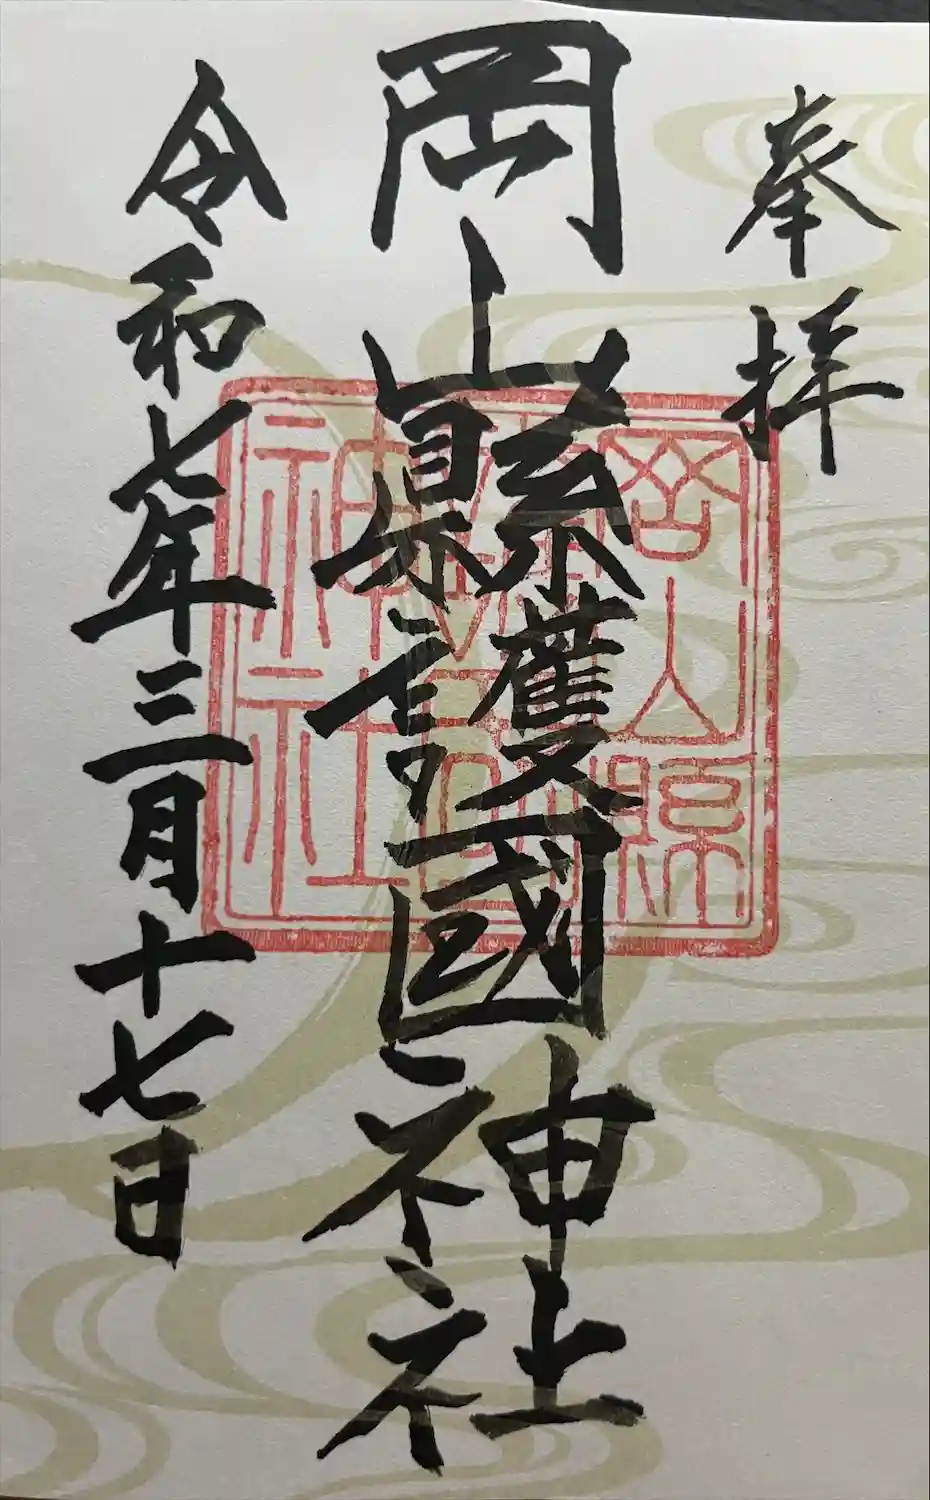 奉拝
岡山縣護國神社
岡山縣護國神社
令和七年三月十七日